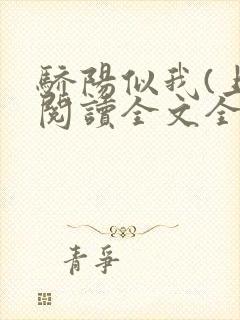 驕陽似我(上
閱讀全文全
青爭